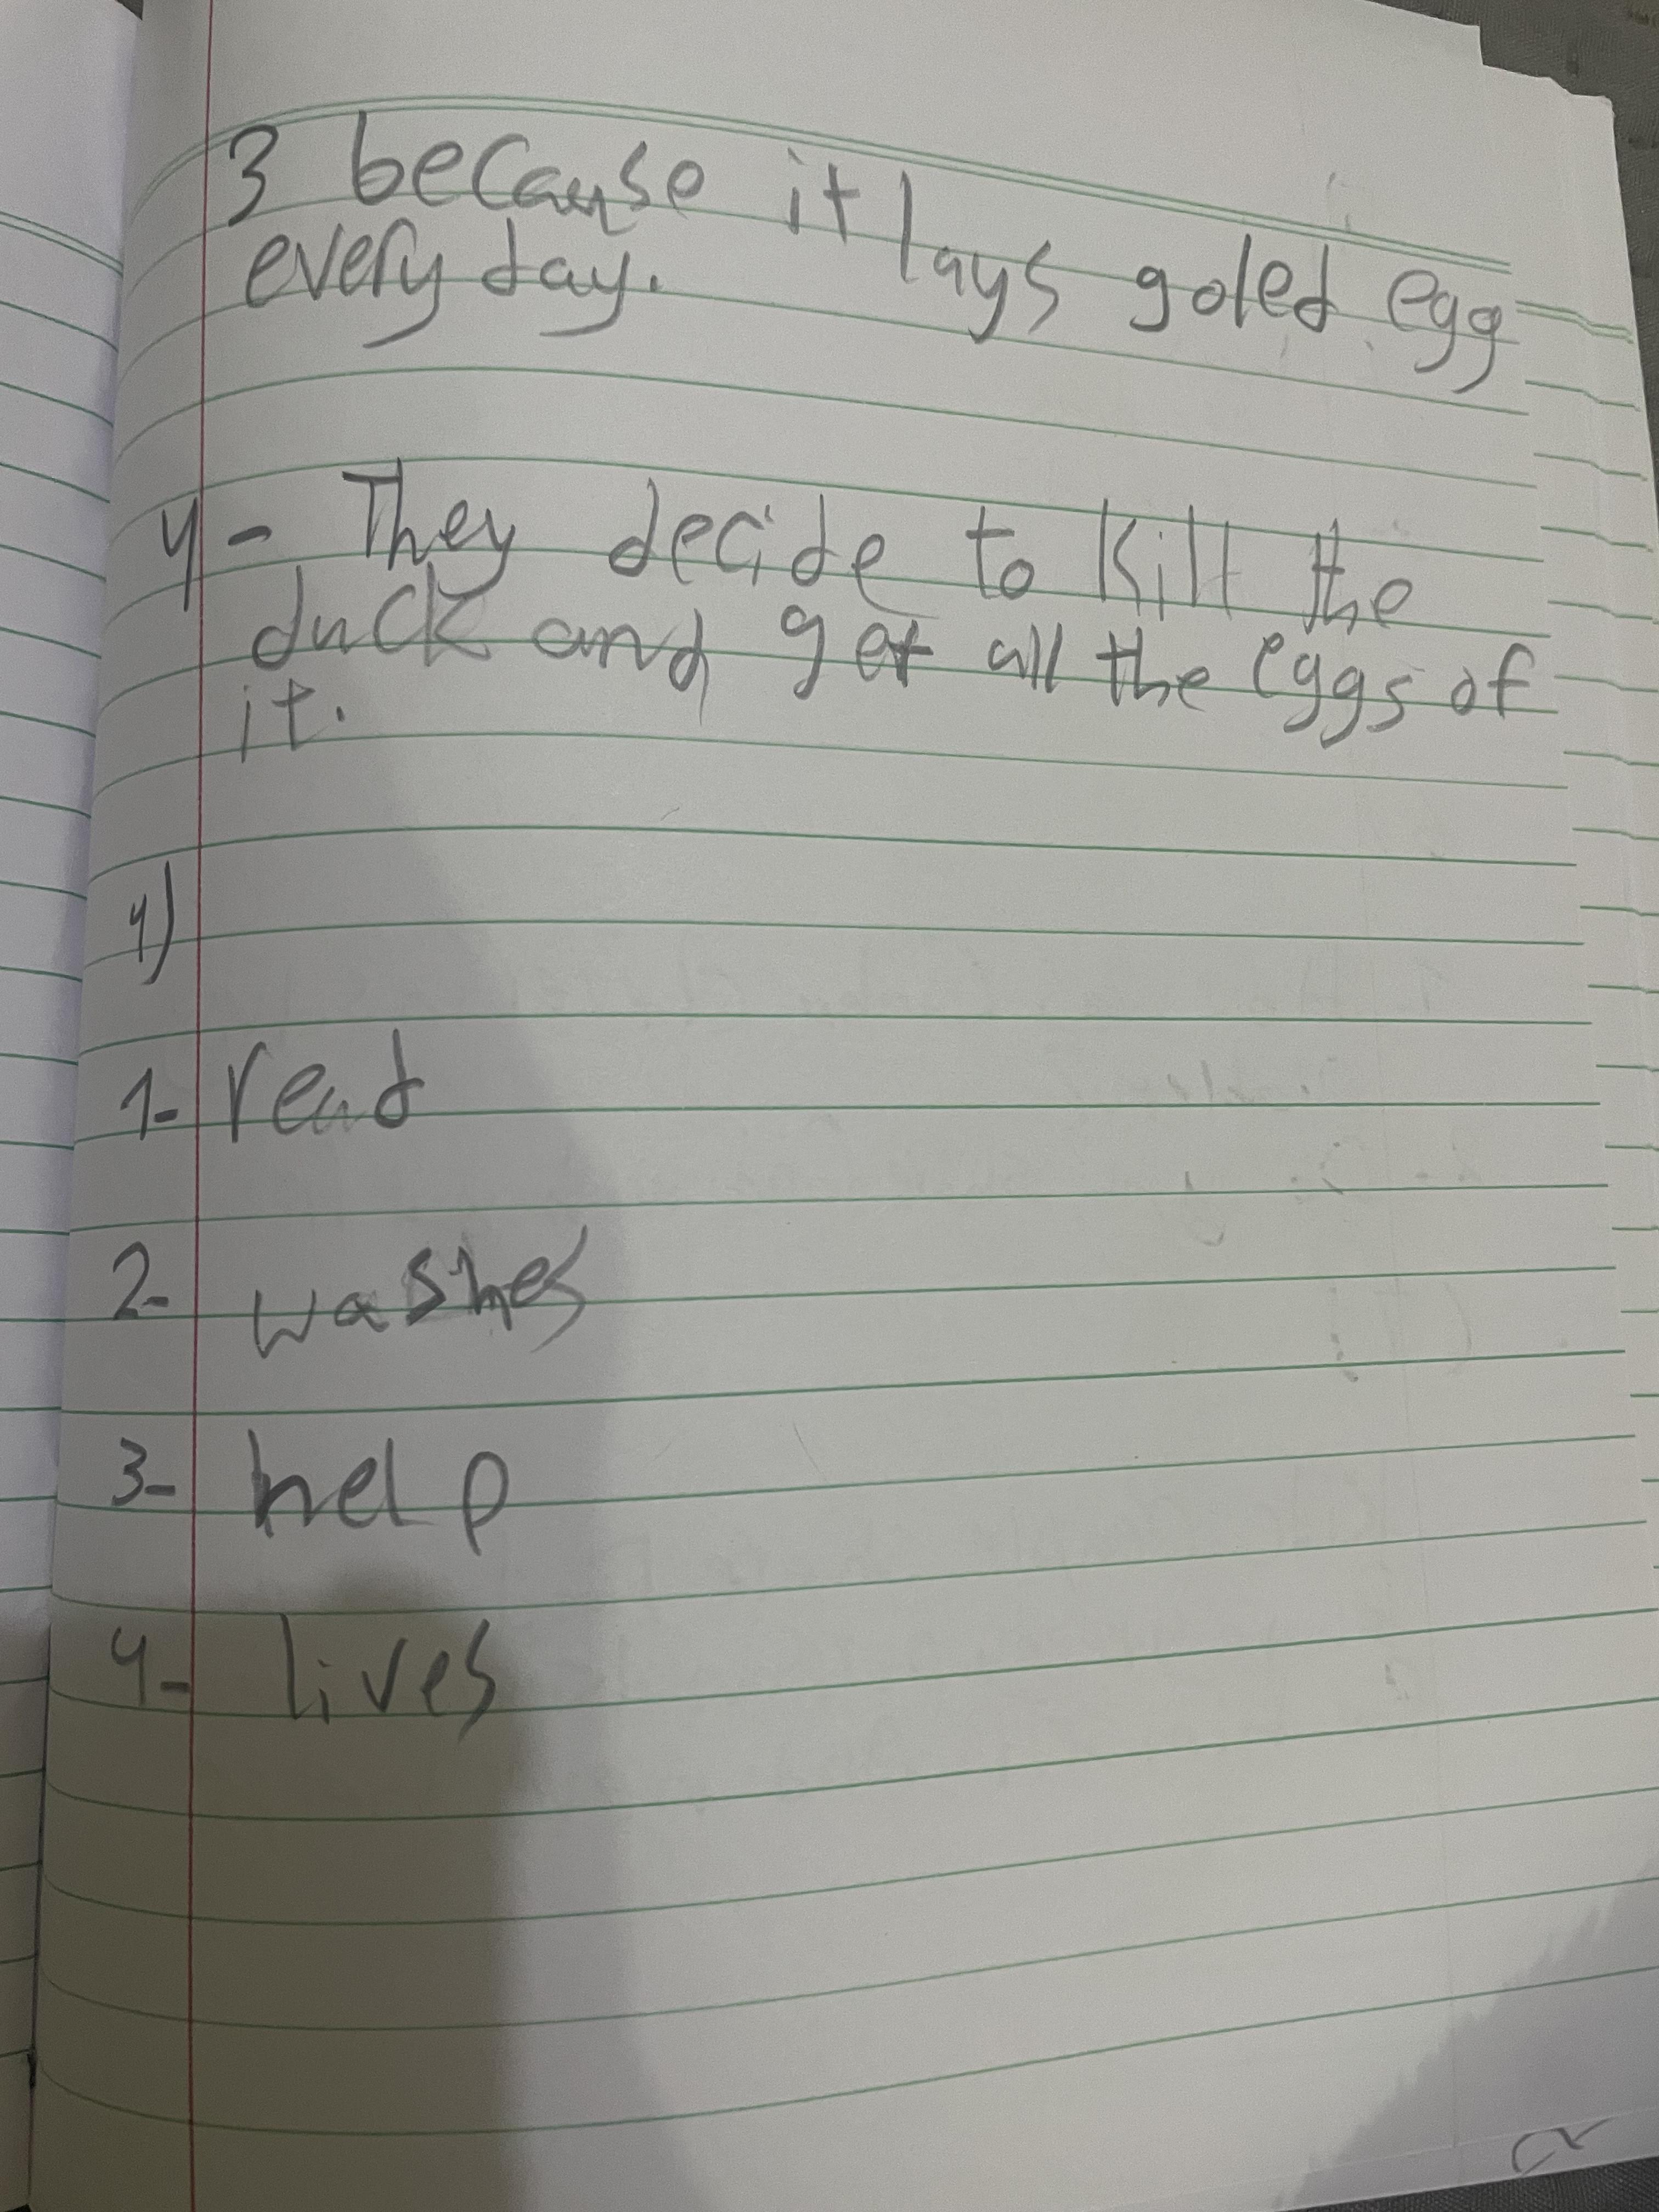 3 because it lays goled egg
every day.
4- They decide to kill the
duck and get all the eggs of
it.
4)
1- read
2- washes
3- help
4- lives